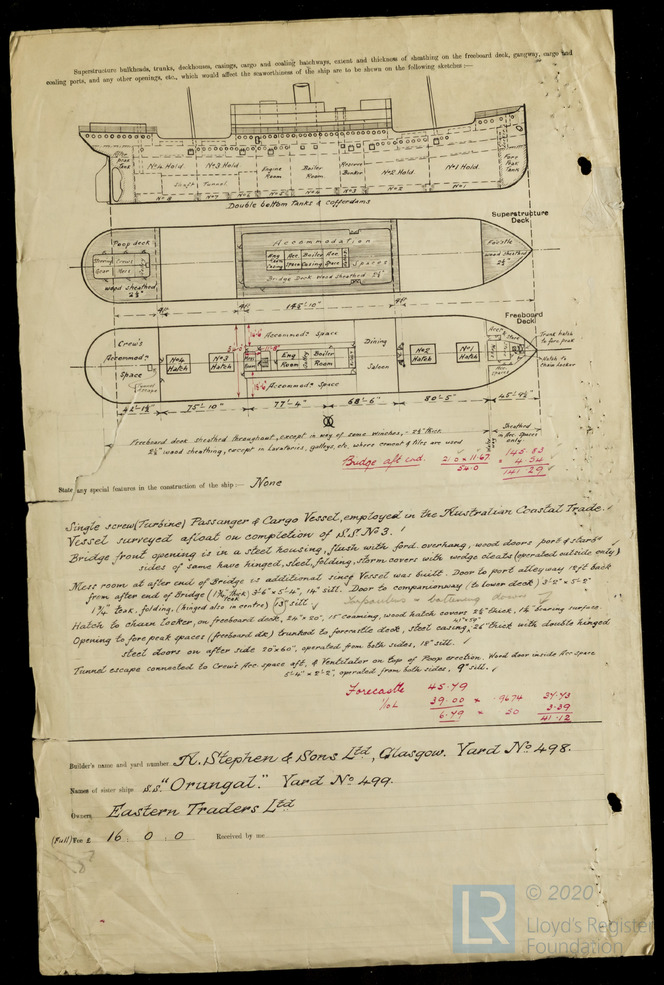 Superstructure bulkheads, trunks, deckhouses, casings, cargo and coaling hatchways, extent and thickness of sheathing on the freeboard deck, gangway, cargo and
coaling ports, and any other openings, etc., which would affect the seaworthiness of the ship are to be shewn on the following sketches :—
After Peak Tank
No 4 Hold
No 3 Hold
Engine Room
Boiler Room
Reserve Bunker
No 2 Hold
No 1 Hold
Fore Peak Tank
Shaft Tunnel
Double bottom Tanks & Cofferdams
Superstructure Deck
Poop deck
Steering Gear
Crew's
wood sheathed 2½"
Accommodation
Spaces
Bridge Deck Wood Sheathed 2½"
Fo'cstle
wood sheathed 2½"
4'
4'
145'-10"
4'
Freeboard Deck
Crew's
Accommodn
Space
Tunnel Escape
No 4 Hatch
No 3 Hatch
Accommodn Space
Eng Room
Boiler Room
Accommodn Space
Dining
Saloon
No 2 Hatch
No 1 Hatch
Trunk hatch to fore peak
Hatch to chain locker
42'-1½"
75'-10"
77'-4"
68'-6"
80'-5"
45'-9½"
Freeboard deck sheathed throughout, except in way of some winches, - 2½" thick.
2½" wood sheathing, except in lavatories, galleys, etc. where cement & tiles are used
Sheathed in Acc. spaces only
Bridge aft end.
21.0 x 11.67
54.0
145.83
4.54
141.29
State any special features in the construction of the ship :— None
Single screw (Turbine) Passanger & Cargo Vessel, employed in the Australian Coastal Trade.
Vessel surveyed afloat on completion of S.S. No 3.
Bridge front opening is in a steel housing, flush with ford. overhang, wood doors port & starbd
sides of same have hinged, steel, folding, storm covers with wedge cleats (operated outside only)
Mess room at after end of Bridge is additional since Vessel was built. Door to port alleyway 18 ft back
from after end of Bridge (1¾" thick teak) 3'-6" x 5'-4", 14" sill. Door to companionway (to lower deck) 3'-2" x 5'-2"
1¾" teak, folding, (hinged also in centre) 13" sill
Hatch to chain locker, on freeboard deck, 24" x 20", 15" coaming, wood hatch covers 2½" thick, 1½" bearing surface.
Opening to fore peak spaces (freeboard dk) trunked to forecastle deck, steel casing, .26" thick with double hinged
steel doors on after side 20" x 60", operated from both sides, 18" sill.
Tunnel escape connected to Crew's Acc. space aft, & Ventilator on top of Poop erection. Wood door inside Acc space
5'-4" x 2'-2", operated from both sides, 9" sill.
Forecastle 45.79
1/10 L 39.00 x .9674 37.73
6.79 x 50 3.39
41.12
Builder's name and yard number A. Stephen & Sons Ltd, Glasgow. Yard No 498.
Names of sister ships s.s. "Orungal." Yard No 499.
Owners Eastern Traders Ltd
(Full) Fee £ 16 : 0 : 0 Received by me
© 2020
LR
Lloyd's Register
Foundation